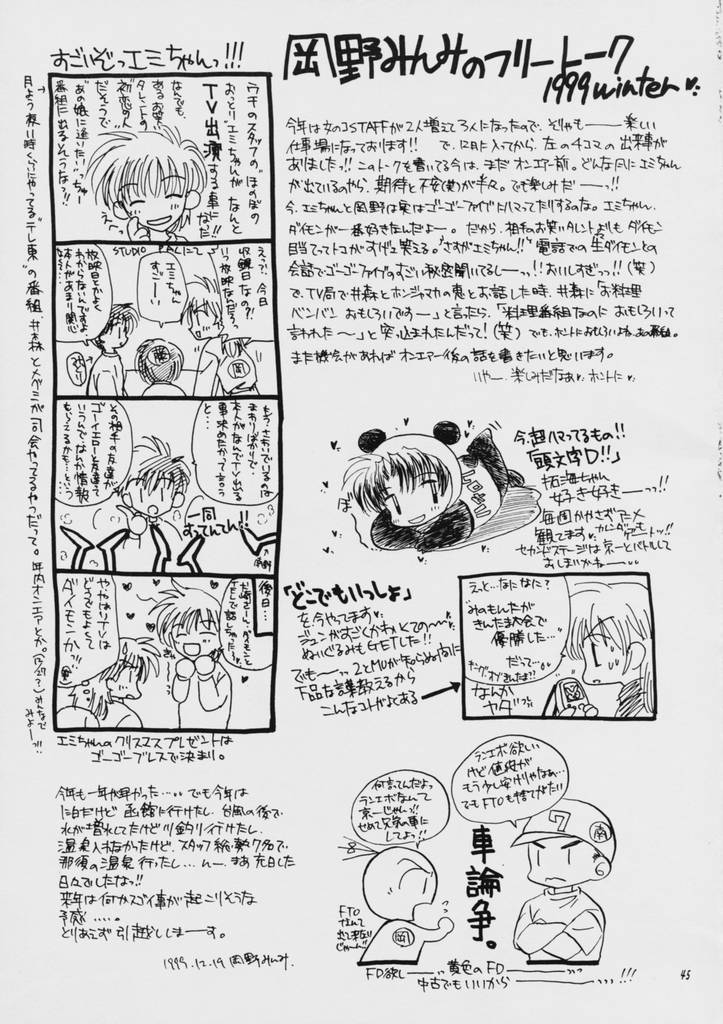 岡野みんみのフリートーク
1999 winter
すごいぞっエミちゃんっ!!!
ウチのスタッフの"ほのぼの
おっとりエミちゃんがなんと
TV出演する事になった!!
なんでも、
あるお笑い
タレントの
初恋の人
だそうで
あの娘に逢いたい"っちゅー
番組に出るそうなっ!!
STUDIO
えっ?今日
収録日なの?!
いつ放映なんだろう
エミちゃん
すごーい
放映日とかよく
わからないんですよ
本人があまり関心
みのり
岡
もうさわいでいるのは
まわりばかりで、
本人がなんでTV出る
事決めたかって言う
と…
その相手の友達が
ゴーイエローと友達って
いうんでなんか情報
もらえるかも…という
一同
すってんてん!!
後日…
ダイモンと
TELで話しちゃったっ
やっぱりTVは
どうでもよくて
ダイモンかっ!!
エミちゃんのクリスマスプレゼントは
ゴーゴーブレスで決まり。
月よう夜11時くらいにやってる"テレ東"の番組、井森とメグミが司会やってるやつだって。年内オンエアとか。みんなで
みよーっ!!
今年は女のコSTAFFが2人増えて3人になったので、そりゃもーー楽しい
仕事場になっております!! で、12月に入ってから、左の4コマの出来事が
ありました!! このトークを書いてる今は、まだオンエアー前。どんな風にエミちゃん
が出ているのやら、期待と不安(めが半々。でも楽しみだーーっ!!
今、エミちゃんと岡野は実はゴーゴーファイブにハマってたりするのな。エミちゃん、
ダイモンが一番好きなんだよー。だから、相手のお笑いタレントよりもダイモン
目当てってトコがすげー笑える。"さすがエミちゃん!!" 電話での生ダイモンとの
会話でゴーゴーファイブのすごい秘密聞いてるしーっっ!! おいしすぎっっ!!(笑)
で、TV局で井森とホンジャマカの恵とお話した時、井森に「お料理
バンバンおもしろいですー」と言たら、「料理番組なのにおもしろいって
言われた〜」と突っ込まれたんだって!(笑) でも、ホントにおもしろいよね、あの番組。
また機会があればオンエアー後の話を書きたいと思います。
いやー楽しみだなぁ ホントに
今、超ハマってるもの!!
「頭文字D!!」
拓海ちゃん
好き好きーーっ!!
毎週かかさずアニメ
観てます カレンダーも
ゲットッ!!
セカンドステージは京一とバトルして
おしまいかねー
「どこでもいっしょ」
を今やってます
ジュンがすごくかわいくての〜
ぬいぐるみもGETした!!
でもーっっ 2さんが知らぬ内に
下品な言葉教えるから
こんなコトがよくある
えっと…なになに?
みのもんたが
きんたま大会で
優勝した…
だって…
なんか
ヤダ
今年も一年が早かった….. でも今年は
1泊だけど函館に行けたし、台風の後で
水が増水してたけど川釣り行けたし、
温泉入れなかったけど、スタッフ総勢7名で
那須の温泉行ったし…んー、まあ充実した
日々でしたなっ!!
来年は何かスゴイ事が起こりそうな
予感…..。
とりあえず引越ししまーす。
1999.12.19 岡野みんみ.
ランエボ欲しい
けど値段が
もう少し安けりゃなぁ…
でもFTOも捨てがたい
何言ってんだよっ
ランエボなんて
京一じゃんっ!!
せめて兄弟の車に
してよっ!!
車論争。
FTO
なんて
出て来ない
じゃーん!!
岡
FD欲しーーっ 黄色のFDーーっっ
中古でもいいからーーっっ!!!
45